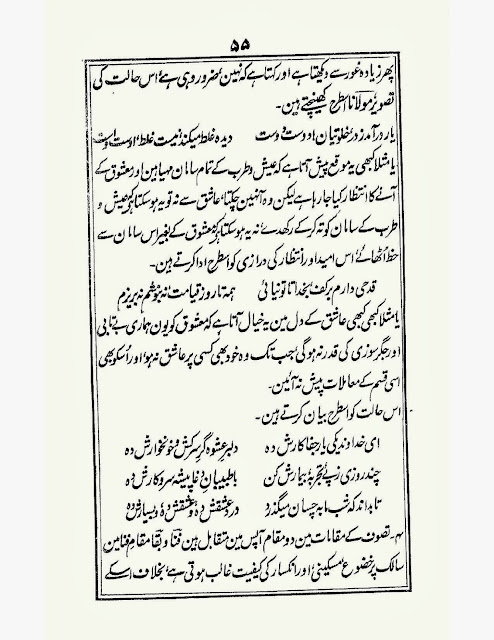 ۵۵
پھر زیادہ غور سے دیکھتا ہے اور کہتا ہے کہ نہین، ضرور وہی ہے، اس حالت کی
تصویر مولانا اسطرح کھینچتے ہین۔
یار در آمد ز در خلوتیان دوست دوست دیدہ غلط میکند نیست غلط اوست اوست
یا مثلاً کبھی یہ موقع پیش آتا ہے کہ عیش و طرب کے تمام سامان مہیا ہین اور معشوق کے
آنے کا انتظار کیا جا رہا ہے لیکن وہ آنہین چکتا، عاشق سے نہ تو یہ ہو سکتا کہ عیش و
طرب کے سامان کو تہ کر کے رکھدے نہ یہ ہو سکتا کہ معشوق کے بغیر اس سامان سے
حظ اُٹھائے، اس امید اور انتظار کی درازی کو اسطرح ادا کرتے ہین۔
قدحی دارم بر کف بخدا تا تو نیائی ہمہ تا روز قیامت نہ بنوشم نہ بریزم
یا مثلاً کبھی کبھی عاشق کے دل مین یہ خیال آتا ہے کہ معشوق کو یون ہماری بیتابی
اور جگر سوزی کی قدر نہ ہوگی، جب تک وہ خود بھی کسی پر عاشق نہ ہو، اور اُسکو بھی
اسی قسم کے معاملات پیش نہ آئین۔
اس حالت کو اسطرح بیان کرتے ہین۔
ای خداوند یکی یار جفا کارش دہ دلبر عشوہ گر سرکش و خونخوارش دہ
چند روزی ز پئے تجربہ بیمارش کن با طبیبان دغا پیشہ سرو کارش دہ
تا بداند کہ شب ما بہ چسان میگذرد درد عشقش دہ و عشقش دہ و بسیارش دہ
۴۔ تصوف کے مقامات مین دو مقام آپس مین متقابل ہین فنا و بقا، مقام فنا مین
سالک پر خضوع، مسکینی، اور انکسار کی کیفیت غالب ہوتی ہے، بخلاف اسکے